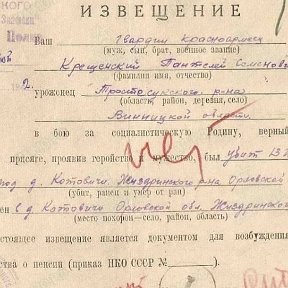 ИЗВЕЩЕНИЕ
Ваш Гвардии красноармеец
(муж, сын, брат, военное звание)
Крещенский Пантелей Семенович
(фамилия, имя, отчество)
уроженец района
(область, район, деревня, село)
Винницкой области
в бою за социалистическую Родину, верный
присяге, проявив геройство и мужество, был убит 13
д. Котовичи Жиздринского р-на Орловской
ранен и умер от ран)
с д. Котовичи Орловской обл. Жиздринского
(место похорон—село, район, область)
стоящее извещение является документом для возбуждения
ства о пенсии (приказ НКО СССР №